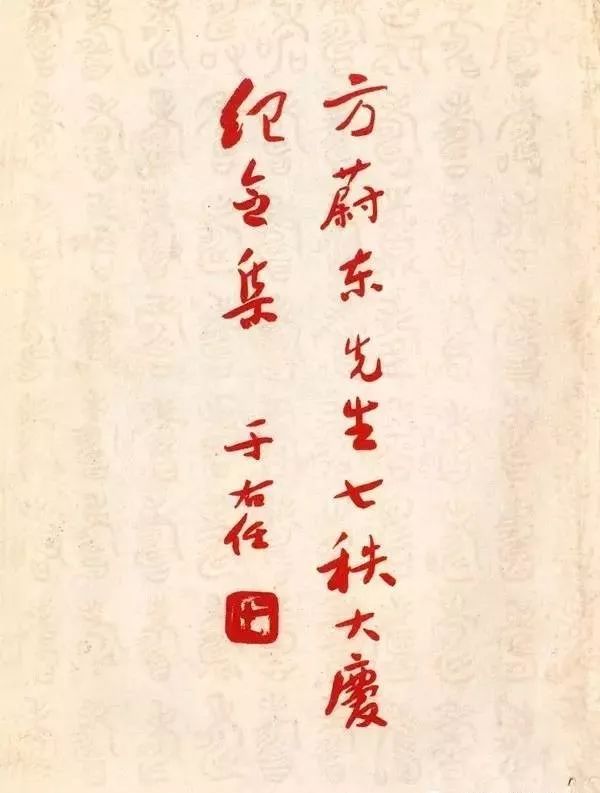 方蔚东先生七秩大慶
纪念集
于右任